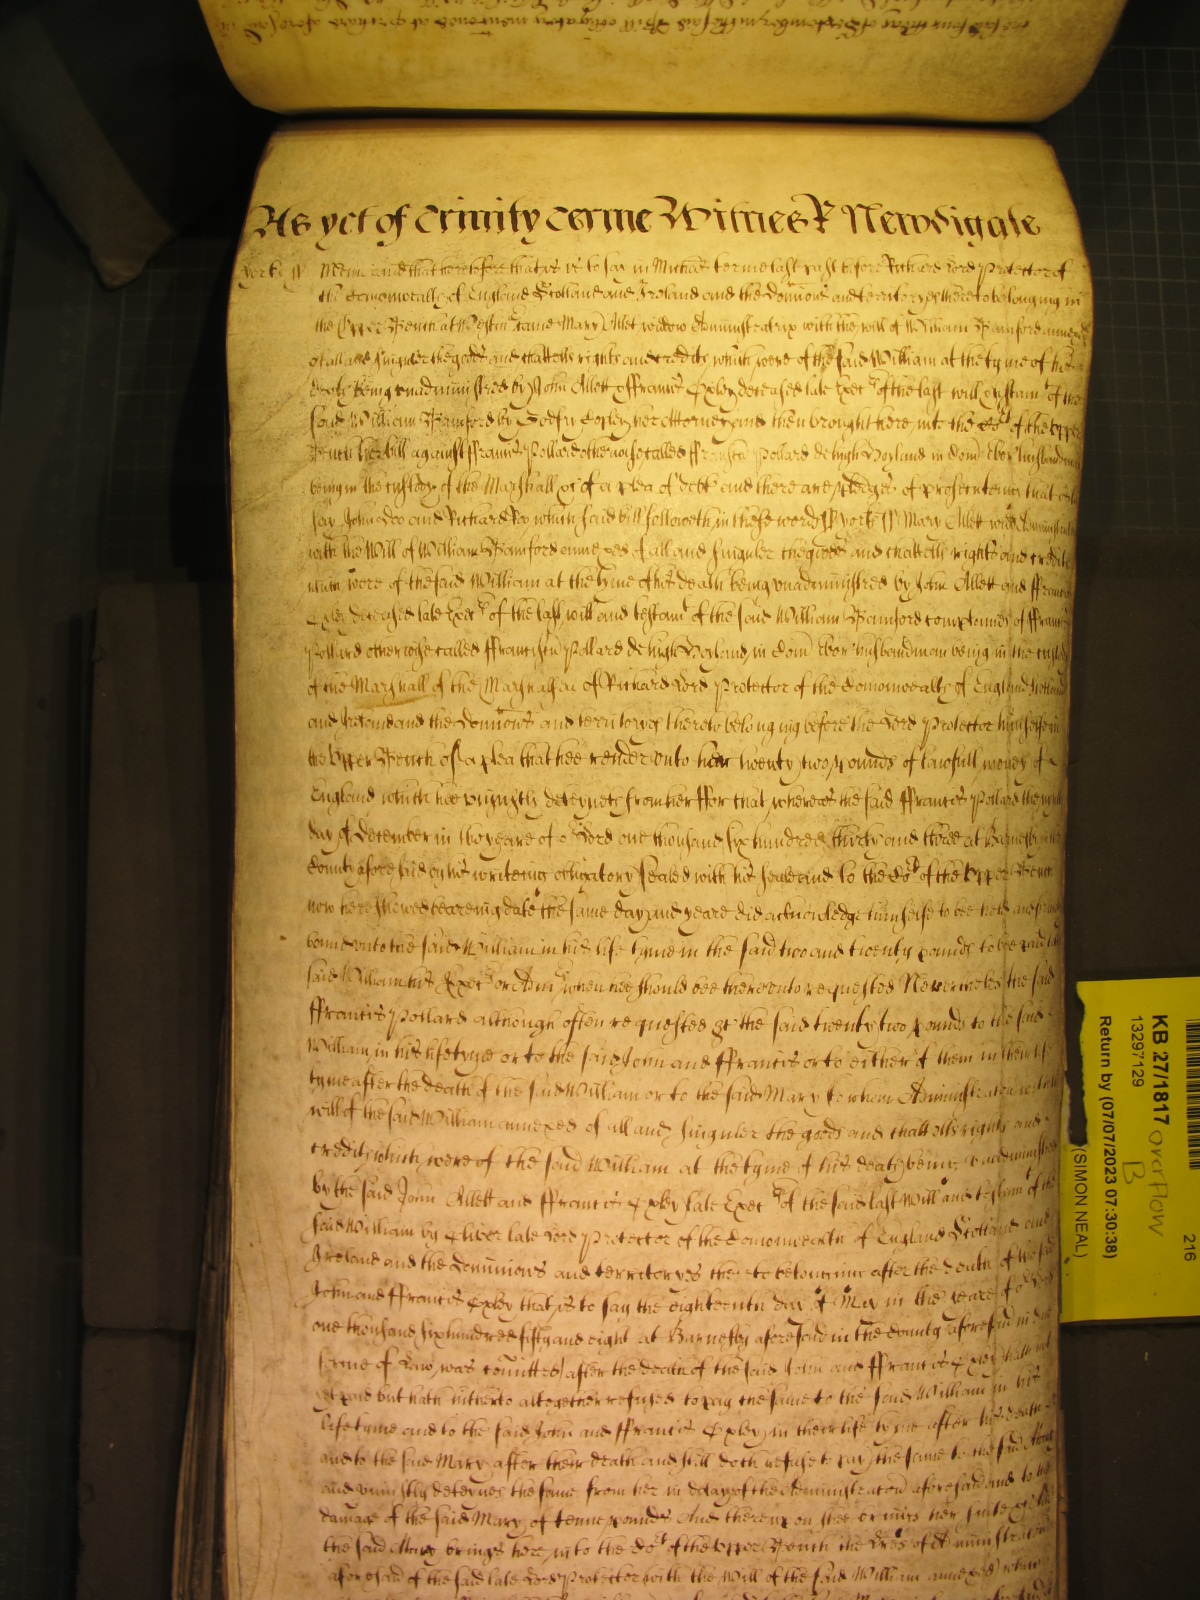 As yet of Trinity terme Witnes R Newdigate
Yorks ss Memorand that heretofore that is to say in Michas terme last past before Richard Lord Protector of
the Comonwealth of England Scotland and Ireland and the Dominions and territoryes thereto belonging in
the Upper Bench at Westm came Mary Allet widow Administratrix with the will of William Bamford annexed
of all and singuler the goods and chattells rights and credits which were of the said William at the tyme of his
death being unadministred by John Allett & ffrancis Exley deceased late Exec of the last will & testam of the
said William Bamford by Godfry Copley her attorney and then brought here into the Co of the Upper
Bench her bill against ffrancis Pollard otherwise called ffrancisu Pollard de high Hoyland in Com Ebor husbandman
being in the custody of the Marshall &c of a plea of debt and there are pledges of prosecuteing that is to
say John Doe and Richard Roe which said bill followeth in these words ss Yorks ss Mary Allett widd Administratrix
with the Will of William Bamford annexed of all and singuler the goods and chattells rights and credits
which were of the said William at the tyme of his death being unadministred by John Allett and ffrancis
Exley deceased late Exec of the last will and testam of the said William Bamford complaines of ffrancis
Pollard otherwise called ffrancisu Pollard de high Hoyland in Com Ebor husbandman being in the custody
of the Marshall of the Marshalsea of Richard Lord Protector of the Comonwealth of England Scotland
and Ireland and the Dominions and territoryes thereto belonging before the Lord Protector himselfe in
the Upper Bench of a plea that hee render unto her twenty two pounds of lawfull money of
England which hee unjustly deteynes from her ffor that whereas the said ffrancis Pollard the
day of December in the yeare of o Lord one thousand six hundred thirty and three at Barnesley in the
County aforesaid by his writeing obligatory sealed with his seale and to the Co of the Upper Bench
now here shewed beareing date the same day and yeare did acknowledge himselfe to bee held and firmely
bound unto the said William in his life tyme in the said two and twenty pounds to bee paid to the
said William his Exec or Adm when hee should bee thereunto requested Neverthelesse the said
ffrancis Pollard although often requested &c the said twenty two pounds to the said
William in his lifetyme or to the said John and ffrancis or to either of them in their life
tyme after the death of the said William or to the said Mary to whom Administration with the
will of the said William annexed of all and singuler the goods and chattells rights and
credits which were of the said William at the tyme of his death being unadministred
by the said John Allett and ffrancis Exley late Exec of the said last Will and testam of the
said William by Oliver late Lord Protector of the Comonwealth of England Scotland and
Ireland and the Dominions and territoryes thereto belonging after the death of the said
John and ffrancis Exley that is to say the eighteenth day of May in the yeare of o Lord
one thousand six hundred fifty and eight at Barnesley aforesaid in the County aforesaid in due
forme of Law was comitted after the death of the said John and ffrancis Exley hath not
yet paid but hath hitherto altogether refused to pay the same to the said William in his
life tyme and to the said John and ffrancis Exley in their life tyme after his death
and to the said Mary after their death and still doth refuse to pay the same to the said Mary
and unjustly deteynes the same from her in delay of the Administration aforesaid and to the
damage of the said Mary of tenne pounds And thereupon shee brings her suite &c And
the said Mary brings here into the Co of the Upper Bench the Lres of Administration
aforesaid of the said late Lord Protector with the Will of the said William annexed which
KB 27/1817 overflow
B
13297129
Return by (07/07/2023 07:30:38)
(SIMON NEAL)
216